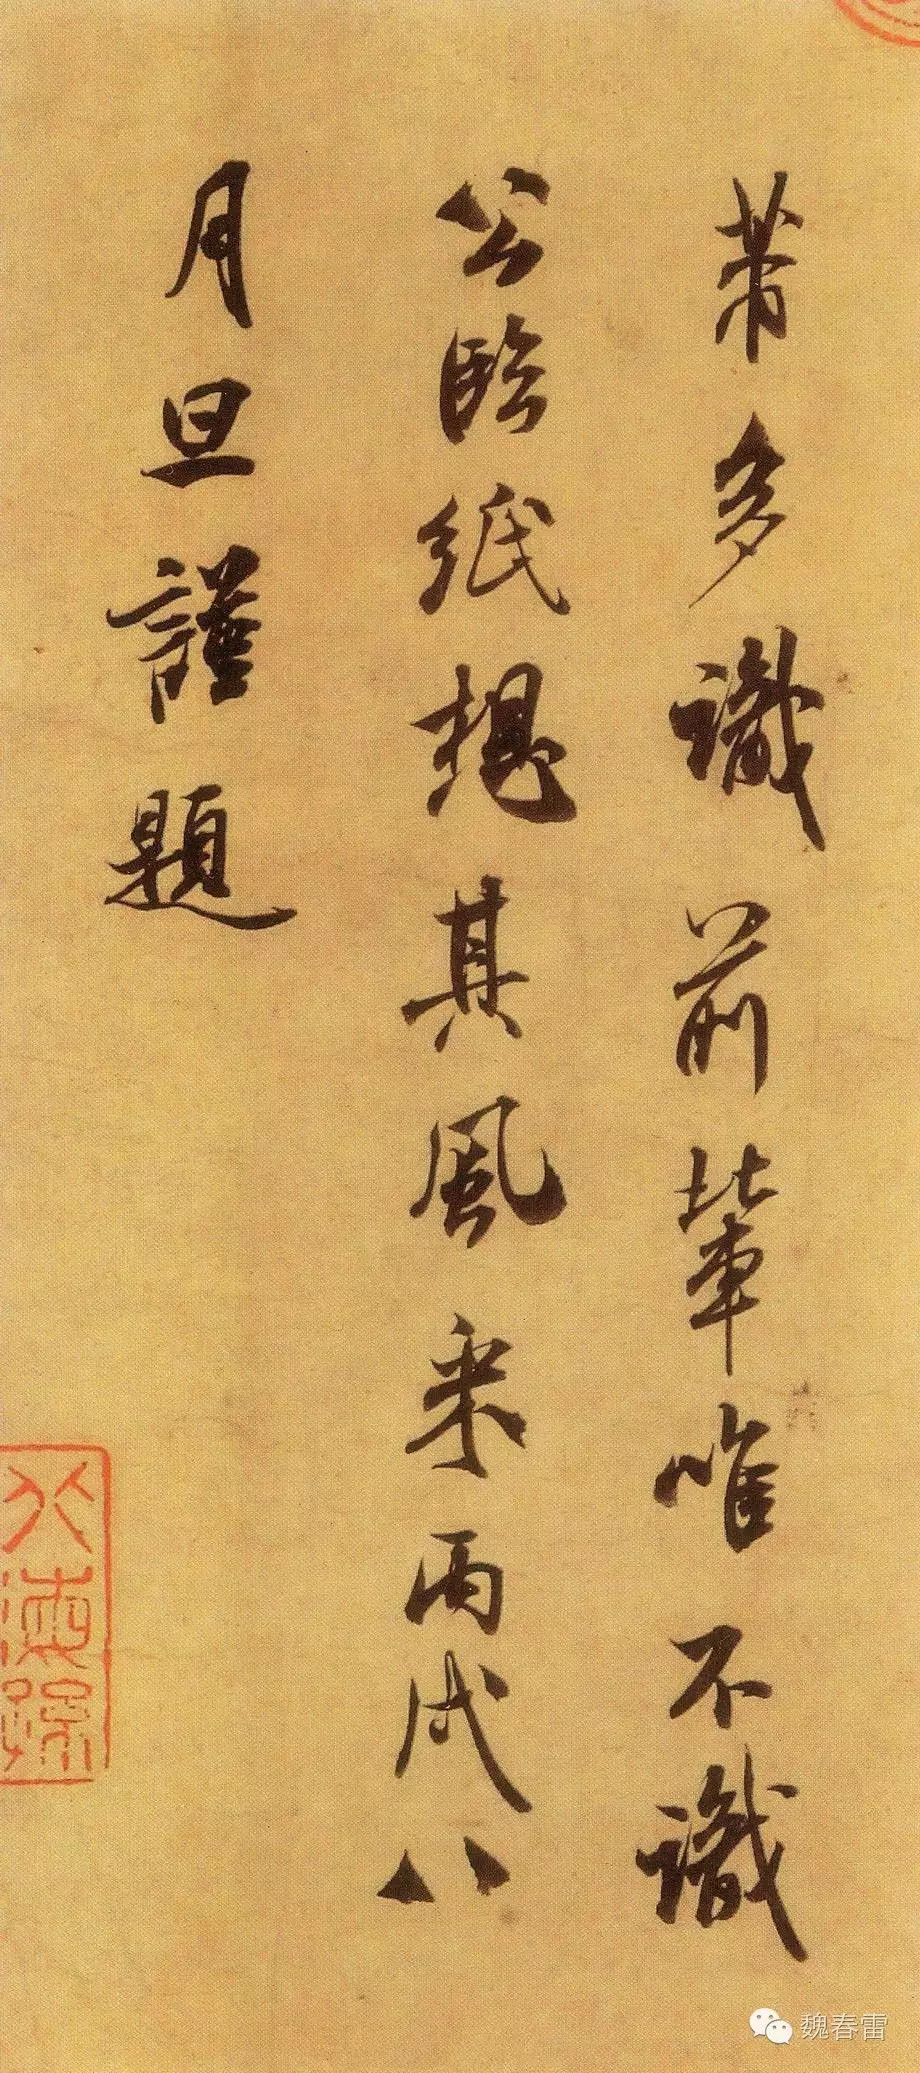 芾多識前輩唯不識
公臨紙想其風采丙戌八
月旦謹題
魏春雷